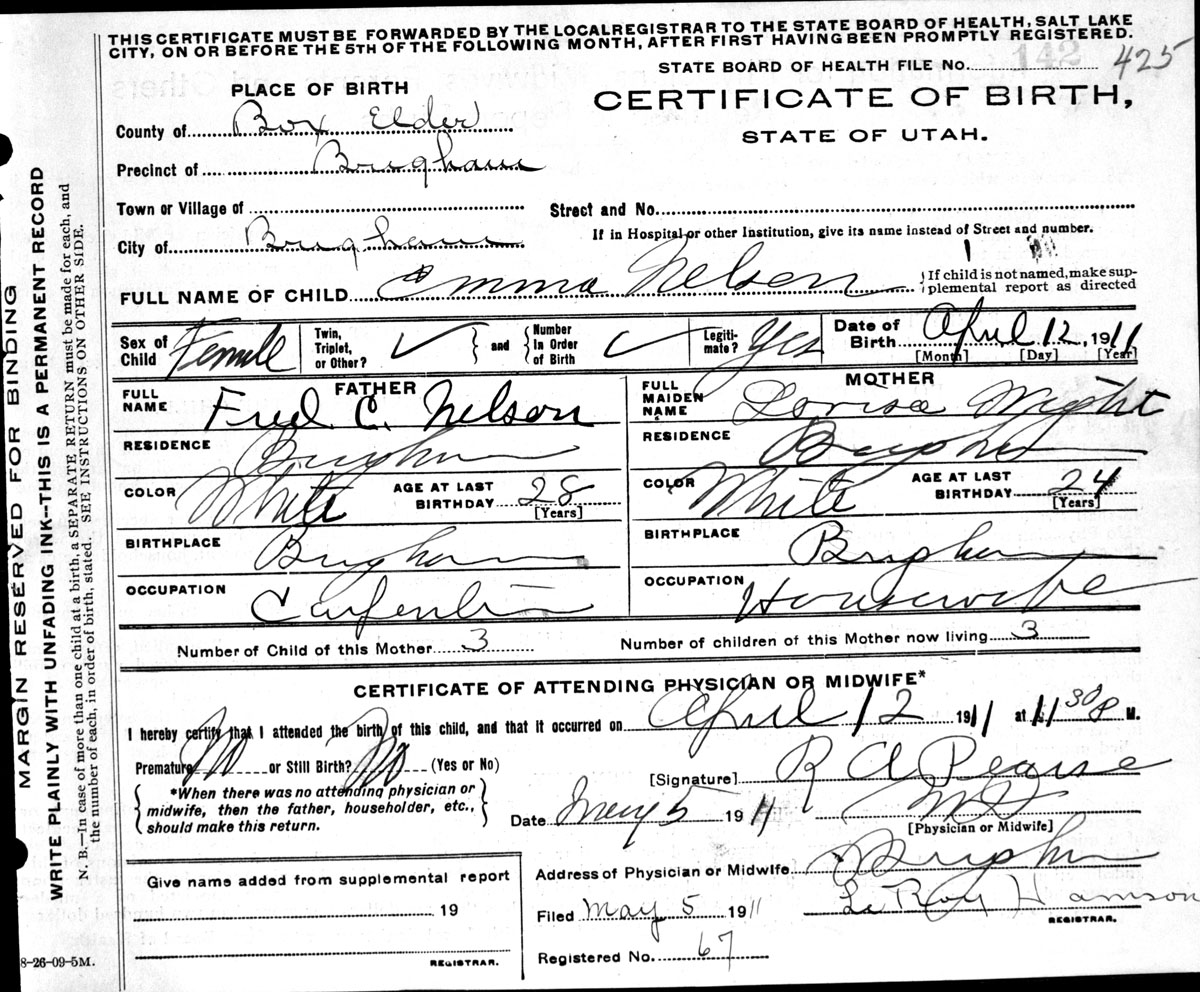 THIS CERTIFICATE MUST BE FORWARDED BY THE LOCAL REGISTRAR TO THE STATE BOARD OF HEALTH, SALT LAKE
CITY, ON OR BEFORE THE 5TH OF THE FOLLOWING MONTH, AFTER FIRST HAVING BEEN PROMPTLY REGISTERED.
142
STATE BOARD OF HEALTH FILE NO. 425
PLACE OF BIRTH
CERTIFICATE OF BIRTH,
STATE OF UTAH.
County of Box Elder
Precinct of Brigham
Town or Village of
Street and No.
City of Brigham
If in Hospital or other Institution, give its name instead of Street and number.
FULL NAME OF CHILD Emma Nelson
{If child is not named, make sup-
plemental report as directed
Sex of Child Female
Twin, Triplet, or Other? ✓
and
Number In Order of Birth ✓
Legiti-mate? Yes
Date of Birth April 12, 1911
[Month] [Day] [Year]
FATHER
MOTHER
FULL NAME Fred. C. Nelson
FULL MAIDEN NAME Lovisa Wight
RESIDENCE Brigham
RESIDENCE Brigham
COLOR White AGE AT LAST BIRTHDAY 28 [Years]
COLOR White AGE AT LAST BIRTHDAY 24 [Years]
BIRTHPLACE Brigham
BIRTHPLACE Brigham
OCCUPATION Carpenter
OCCUPATION Housewife
Number of Child of this Mother 3
Number of children of this Mother now living 3
CERTIFICATE OF ATTENDING PHYSICIAN OR MIDWIFE*
I hereby certify that I attended the birth of this child, and that it occurred on April 12 1911 at 11 30 P M.
Premature No or Still Birth? No (Yes or No)
[Signature] R A Pearse
*When there was no attending physician or
midwife, then the father, householder, etc.,
should make this return.
Date May 5 1911 M D
[Physician or Midwife]
Give name added from supplemental report
19
REGISTRAR.
Address of Physician or Midwife Brigham
Filed May 5 1911 Le Roy Hamson
REGISTRAR.
Registered No. 67
8-26-09-5M.
MARGIN RESERVED FOR BINDING
WRITE PLAINLY WITH UNFADING INK--THIS IS A PERMANENT RECORD
N. B.—In case of more than one child at a birth, a SEPARATE RETURN must be made for each, and
the number of each, in order of birth, stated. SEE INSTRUCTIONS ON OTHER SIDE.